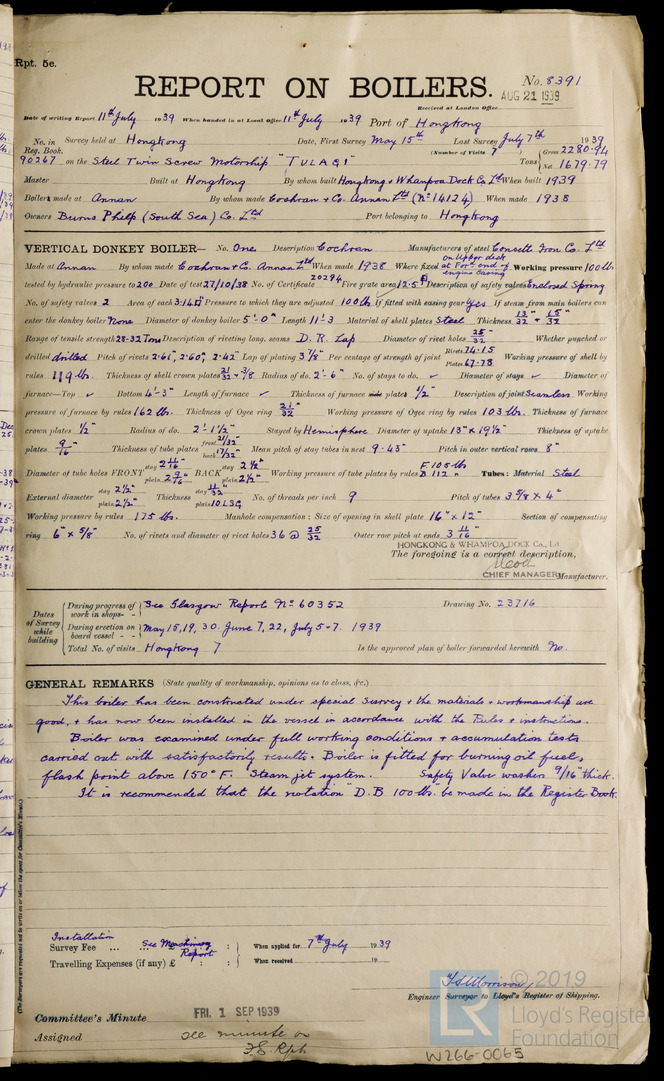 Rpt. 5c.
REPORT ON BOILERS.
No. 8391
Received at London Office AUG 21 1939
Date of writing Report 11th July 1939 When handed in at Local Office 11th July 1939 Port of Hongkong
No. in Survey held at Hongkong Date, First Survey May 15th Last Survey July 7th 1939
Reg. Book. (Number of Visits 7)
90267 on the Steel Twin Screw Motorship "TULAGI" Tons { Gross 2280.94 Net 1679.79
Master Built at Hongkong By whom built Hongkong & Whampoa Dock Co. Ltd When built 1939
Boilers made at Annan By whom made Cochran & Co. Annan Ltd (No 14124) When made 1938
Owners Burns Philp (South Sea) Co. Ltd Port belonging to Hongkong
VERTICAL DONKEY BOILER— No. One Description Cochran Manufacturers of steel Consett Iron Co. Ltd
Made at Annan By whom made Cochran & Co. Annan Ltd When made 1938 Where fixed on Upper deck at Ford end of engine casing Working pressure 100 lb
tested by hydraulic pressure to 200 Date of test 27/10/38 No. of Certificate 20294 Fire grate area 12.5 Description of safety valves Enclosed Spring
No. of safety valves 2 Area of each 3.14 Pressure to which they are adjusted 100 lb If fitted with easing gear Yes If steam from main boilers can
enter the donkey boiler None Diameter of donkey boiler 5'-0" Length 11'-3 Material of shell plates Steel Thickness 13"/32 + 15"/32
Range of tensile strength 28-32 Tons Description of riveting long. seams D.R. Lap Diameter of rivet holes 25"/32 Whether punched or
drilled drilled Pitch of rivets 2.61", 2.60", 2.42" Lap of plating 3 7/8" Per centage of strength of joint Rivets 74.15 Plates 67.78 Working pressure of shell by
rules 119 lbs. Thickness of shell crown plates 21/32 + 3/8 Radius of do. 2'-6" No. of stays to do. ✓ Diameter of stays ✓ Diameter of
furnace—Top ✓ Bottom 4'-3" Length of furnace ✓ Thickness of furnace plates 1/2" Description of joint Seamless Working
pressure of furnace by rules 162 lbs. Thickness of Ogee ring 21/32" Working pressure of Ogee ring by rules 103 lbs. Thickness of furnace
crown plates 1/2" Radius of do. 2'-1 1/2" Stayed by Hemisphere Diameter of uptake 13" x 19 1/2" Thickness of uptake
plates 9/16" Thickness of tube plates front 21/32" back 17/32" Mean pitch of stay tubes in nest 9.43" Pitch in outer vertical rows 8"
Diameter of tube holes FRONT stay 2 11/16" plain 2 9/16" BACK stay 2 1/2" plain 2 1/2" Working pressure of tube plates by rules F 105 lb B 112 " Tubes: Material Steel
External diameter stay 2 1/2" plain 2 1/2" Thickness stay 11/32" plain 10 LSG No. of threads per inch 9 Pitch of tubes 3 5/8 x 4"
Working pressure by rules 175 lbs. Manhole compensation: Size of opening in shell plate 16" x 12" Section of compensating
ring 6" x 5/8" No. of rivets and diameter of rivet holes 36 @ 25/32 Outer row pitch at ends 3 11/16"
HONGKONG & WHAMPOA DOCK CO., Ld
The foregoing is a correct description,
CHIEF MANAGER Manufacturer.
Dates of Survey while building
During progress of work in shops - - See Glasgow Report No 60352 Drawing No. 23716
During erection on board vessel - - - May 15, 19, 30. June 7, 22, July 5-7. 1939
Total No. of visits Hongkong 7 Is the approved plan of boiler forwarded herewith No.
GENERAL REMARKS (State quality of workmanship, opinions as to class, &c.)
This boiler has been constructed under special survey & the materials & workmanship are
good, & has now been installed in the vessel in accordance with the Rules & instructions.
Boiler was examined under full working conditions & accumulation tests
carried out with satisfactorily results. Boiler is fitted for burning oil fuel,
flash point above 150° F. Steam jet system. Safety Valve washer 9/16" thick.
It is recommended that the notation "D.B 100 lb." be made in the Register Book.
(The Surveyors are requested not to write on or below the space for Committee's Minute.)
Installation
Survey Fee ... ... See Machinery Report : : When applied for 7th July 1939
Travelling Expenses (if any) £ : : When received 19
Engineer Surveyor to Lloyd's Register of Shipping.
Committee's Minute FRI. 1 SEP 1939
Assigned see minute on
F.E. Rpt
W266-0065
© 2019
Lloyd's Register
Foundation
LR